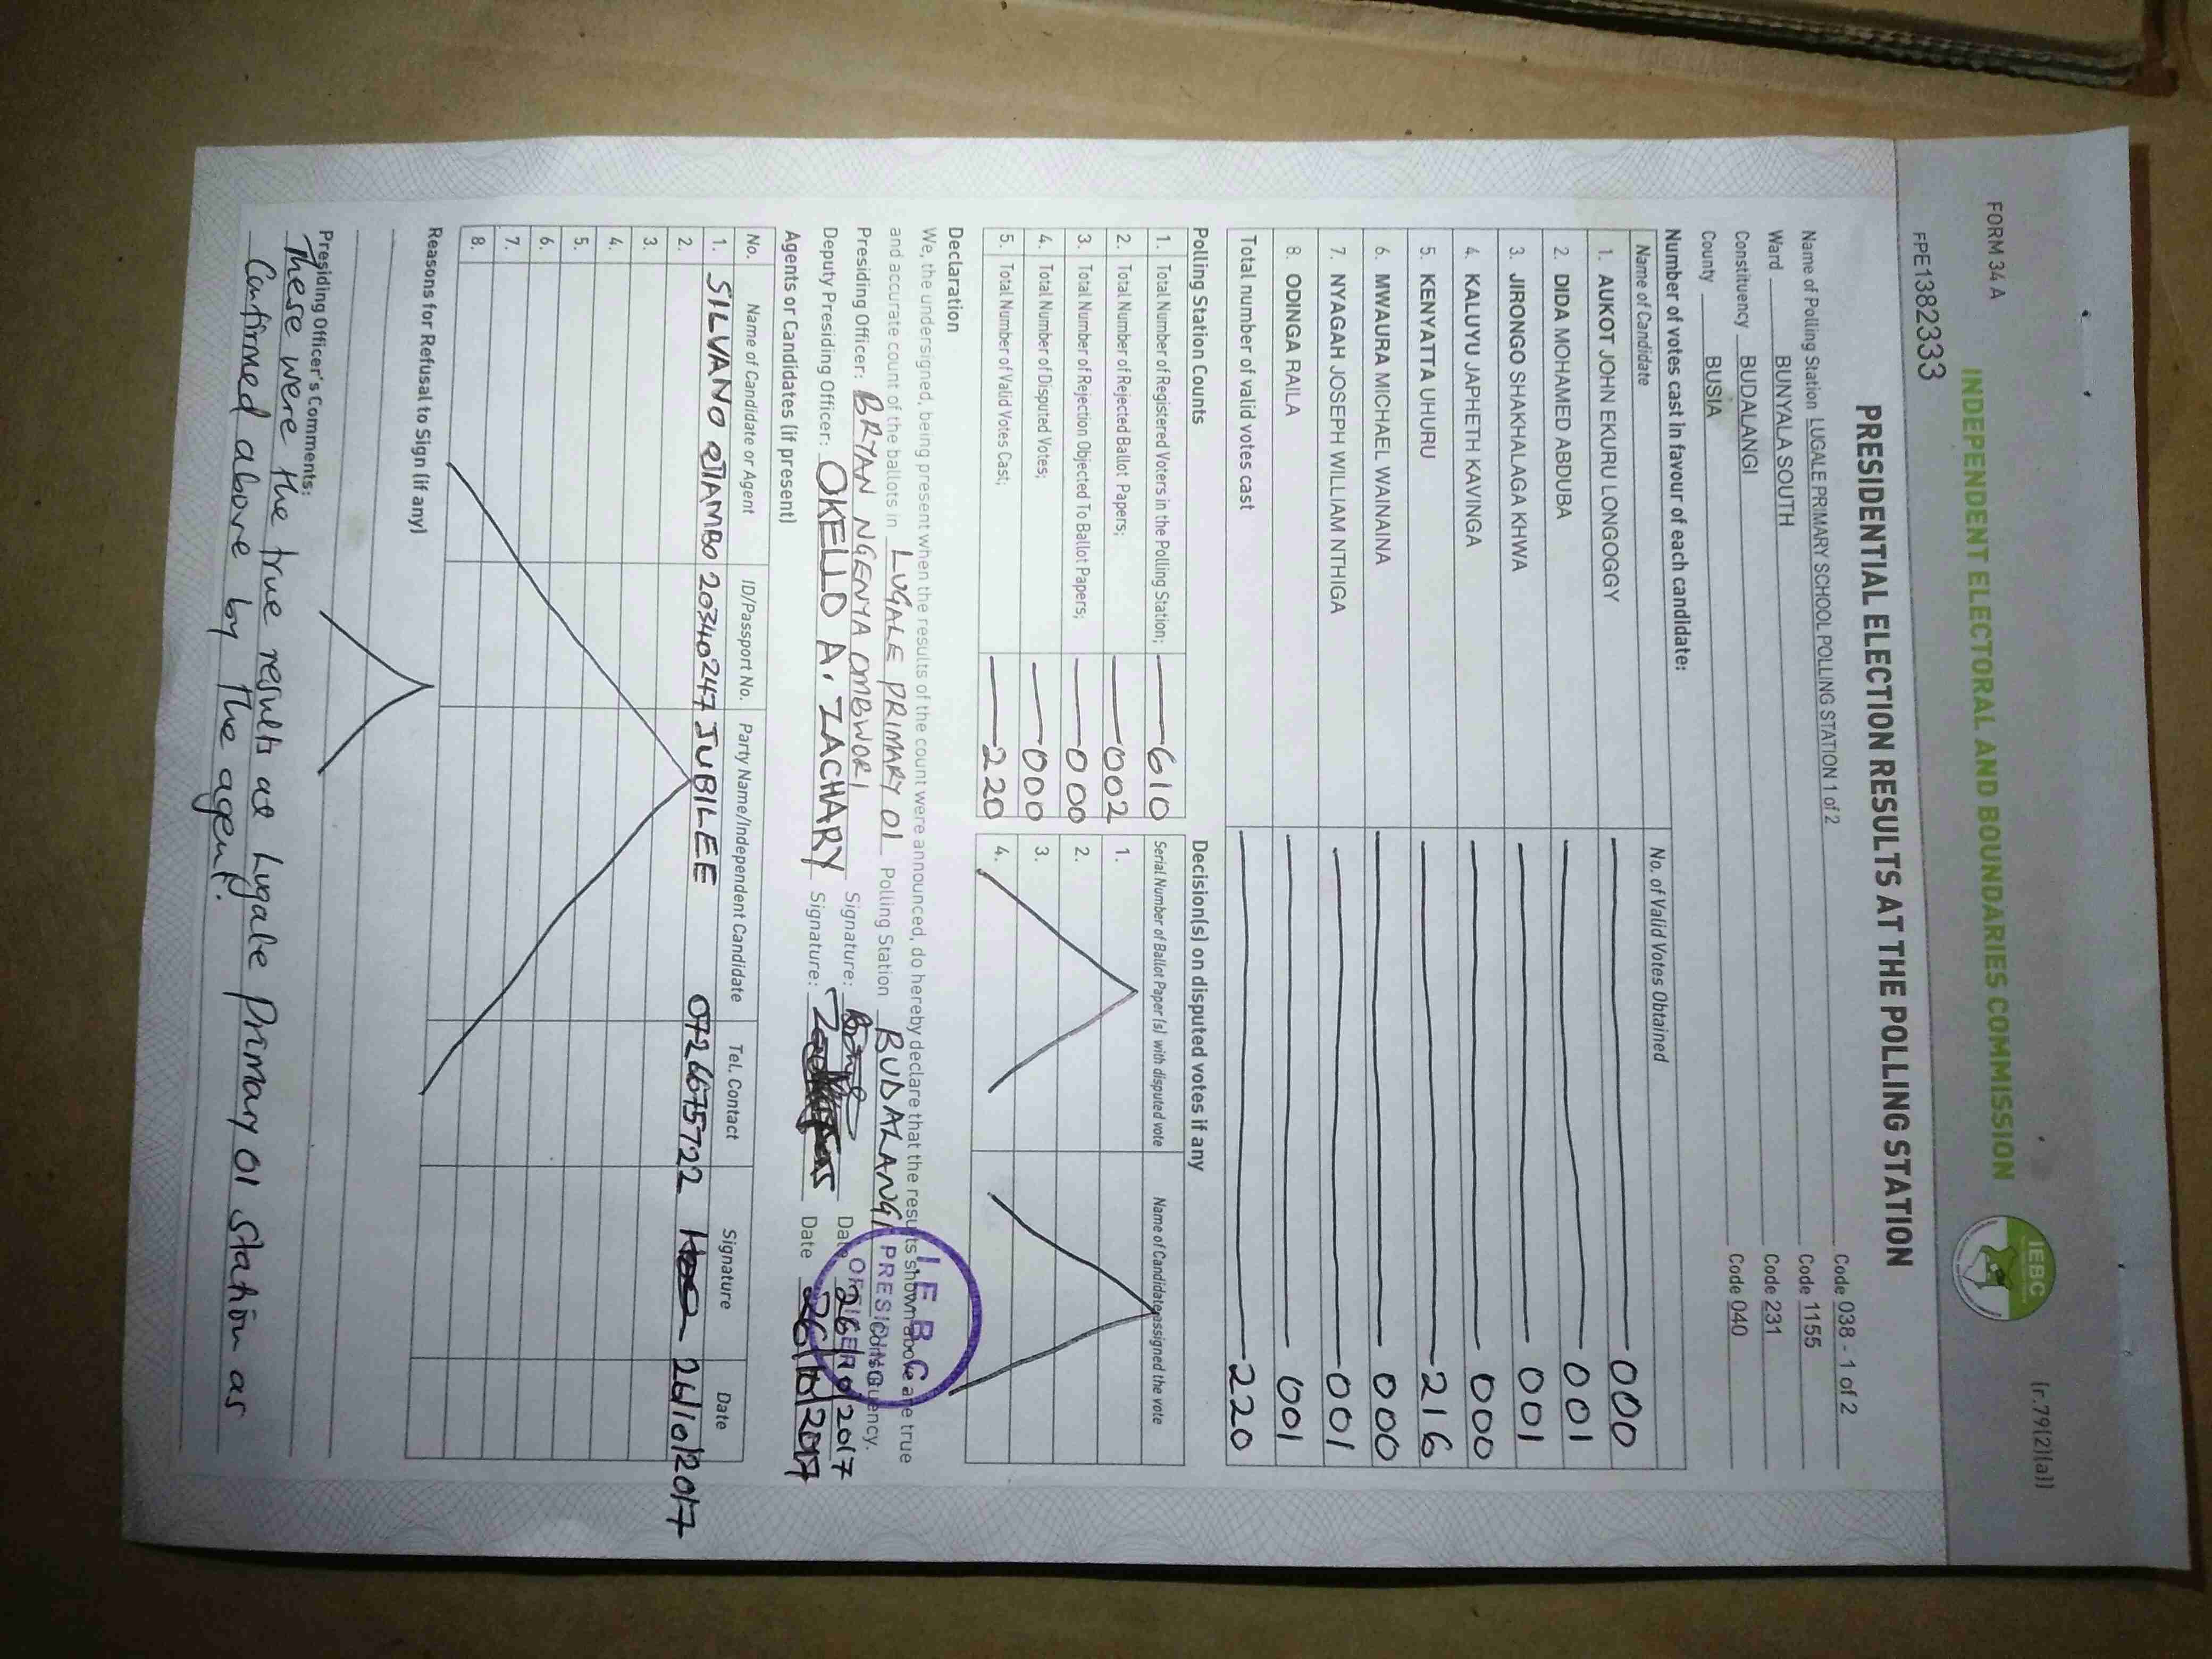 FORM 34 A
(r.79(2)(a))
INDEPENDENT ELECTORAL AND BOUNDARIES COMMISSION
IEBC
FPE1382333
PRESIDENTIAL ELECTION RESULTS AT THE POLLING STATION
Name of Polling Station LUGALE PRIMARY SCHOOL POLLING STATION 1 of 2 Code 038 - 1 of 2
Ward BUNYALA SOUTH Code 1155
Constituency BUDALANGI Code 231
County BUSIA Code 040
Number of votes cast in favour of each candidate:
Name of Candidate No. of Valid Votes Obtained
1. AUKOT JOHN EKURU LONGOGGY 000
2. DIDA MOHAMED ABDUBA 001
3. JIRONGO SHAKHALAGA KHWA 001
4. KALUYU JAPHETH KAVINGA 000
5. KENYATTA UHURU 216
6. MWAURA MICHAEL WAINAINA 000
7. NYAGAH JOSEPH WILLIAM NTHIGA 001
8. ODINGA RAILA 001
Total number of valid votes cast 220
Polling Station Counts
1. Total Number of Registered Voters in the Polling Station; 610
2. Total Number of Rejected Ballot Papers; 002
3. Total Number of Rejection Objected To Ballot Papers; 000
4. Total Number of Disputed Votes; 000
5. Total Number of Valid Votes Cast; 220
Decision(s) on disputed votes if any
Serial Number of Ballot Paper (s) with disputed vote Name of Candidate assigned the vote
1.
2.
3.
4.
Declaration
We, the undersigned, being present when the results of the count were announced, do hereby declare that the results shown above are true
and accurate count of the ballots in LUGALE PRIMARY 01 Polling Station BUDALANGI Constituency.
Presiding Officer: BRYAN NGENYA OMBWORI Signature: Date 26/10/2017
Deputy Presiding Officer: OKELLO A. ZACHARY Signature: Date 26/10/2017
I.E.B.C
PRESIDING
OFFICER
Agents or Candidates (if present)
No. Name of Candidate or Agent ID/Passport No. Party Name/Independent Candidate Tel. Contact Signature Date
1. SILVANO OJIAMBO 20340247 JUBILEE 0726675722 26/10/2017
2.
3.
4.
5.
6.
7.
8.
Reasons for Refusal to Sign (if any)
Presiding Officer's Comments:
These were the true results at Lugale Primary 01 station as
Confirmed above by the agent.